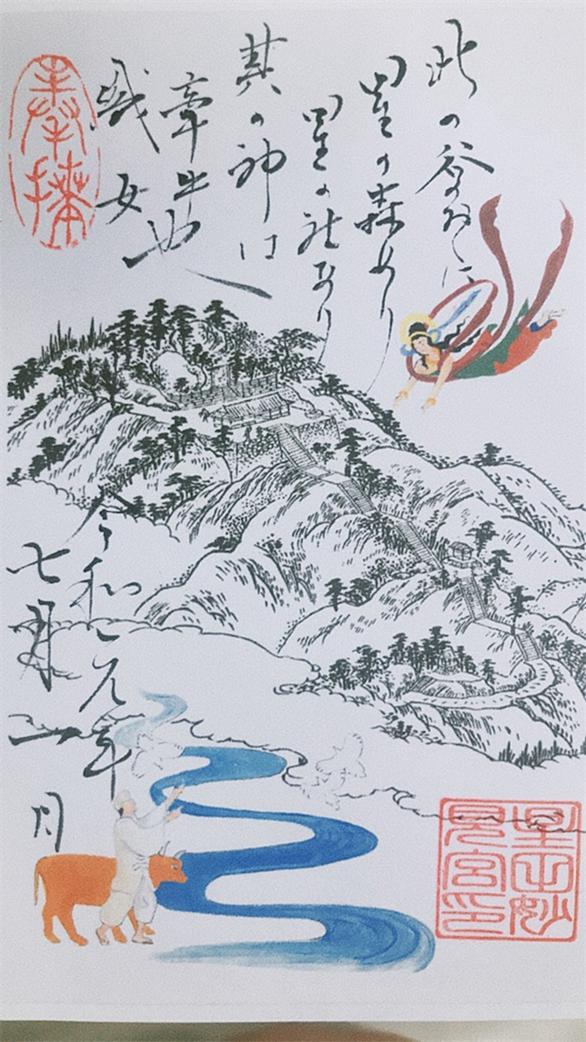 此の谷のおくに
星の森あり
星の社なり
其の神は
牽牛
織女也
奉拝
令和元年
七月一日
星田妙
見宮印